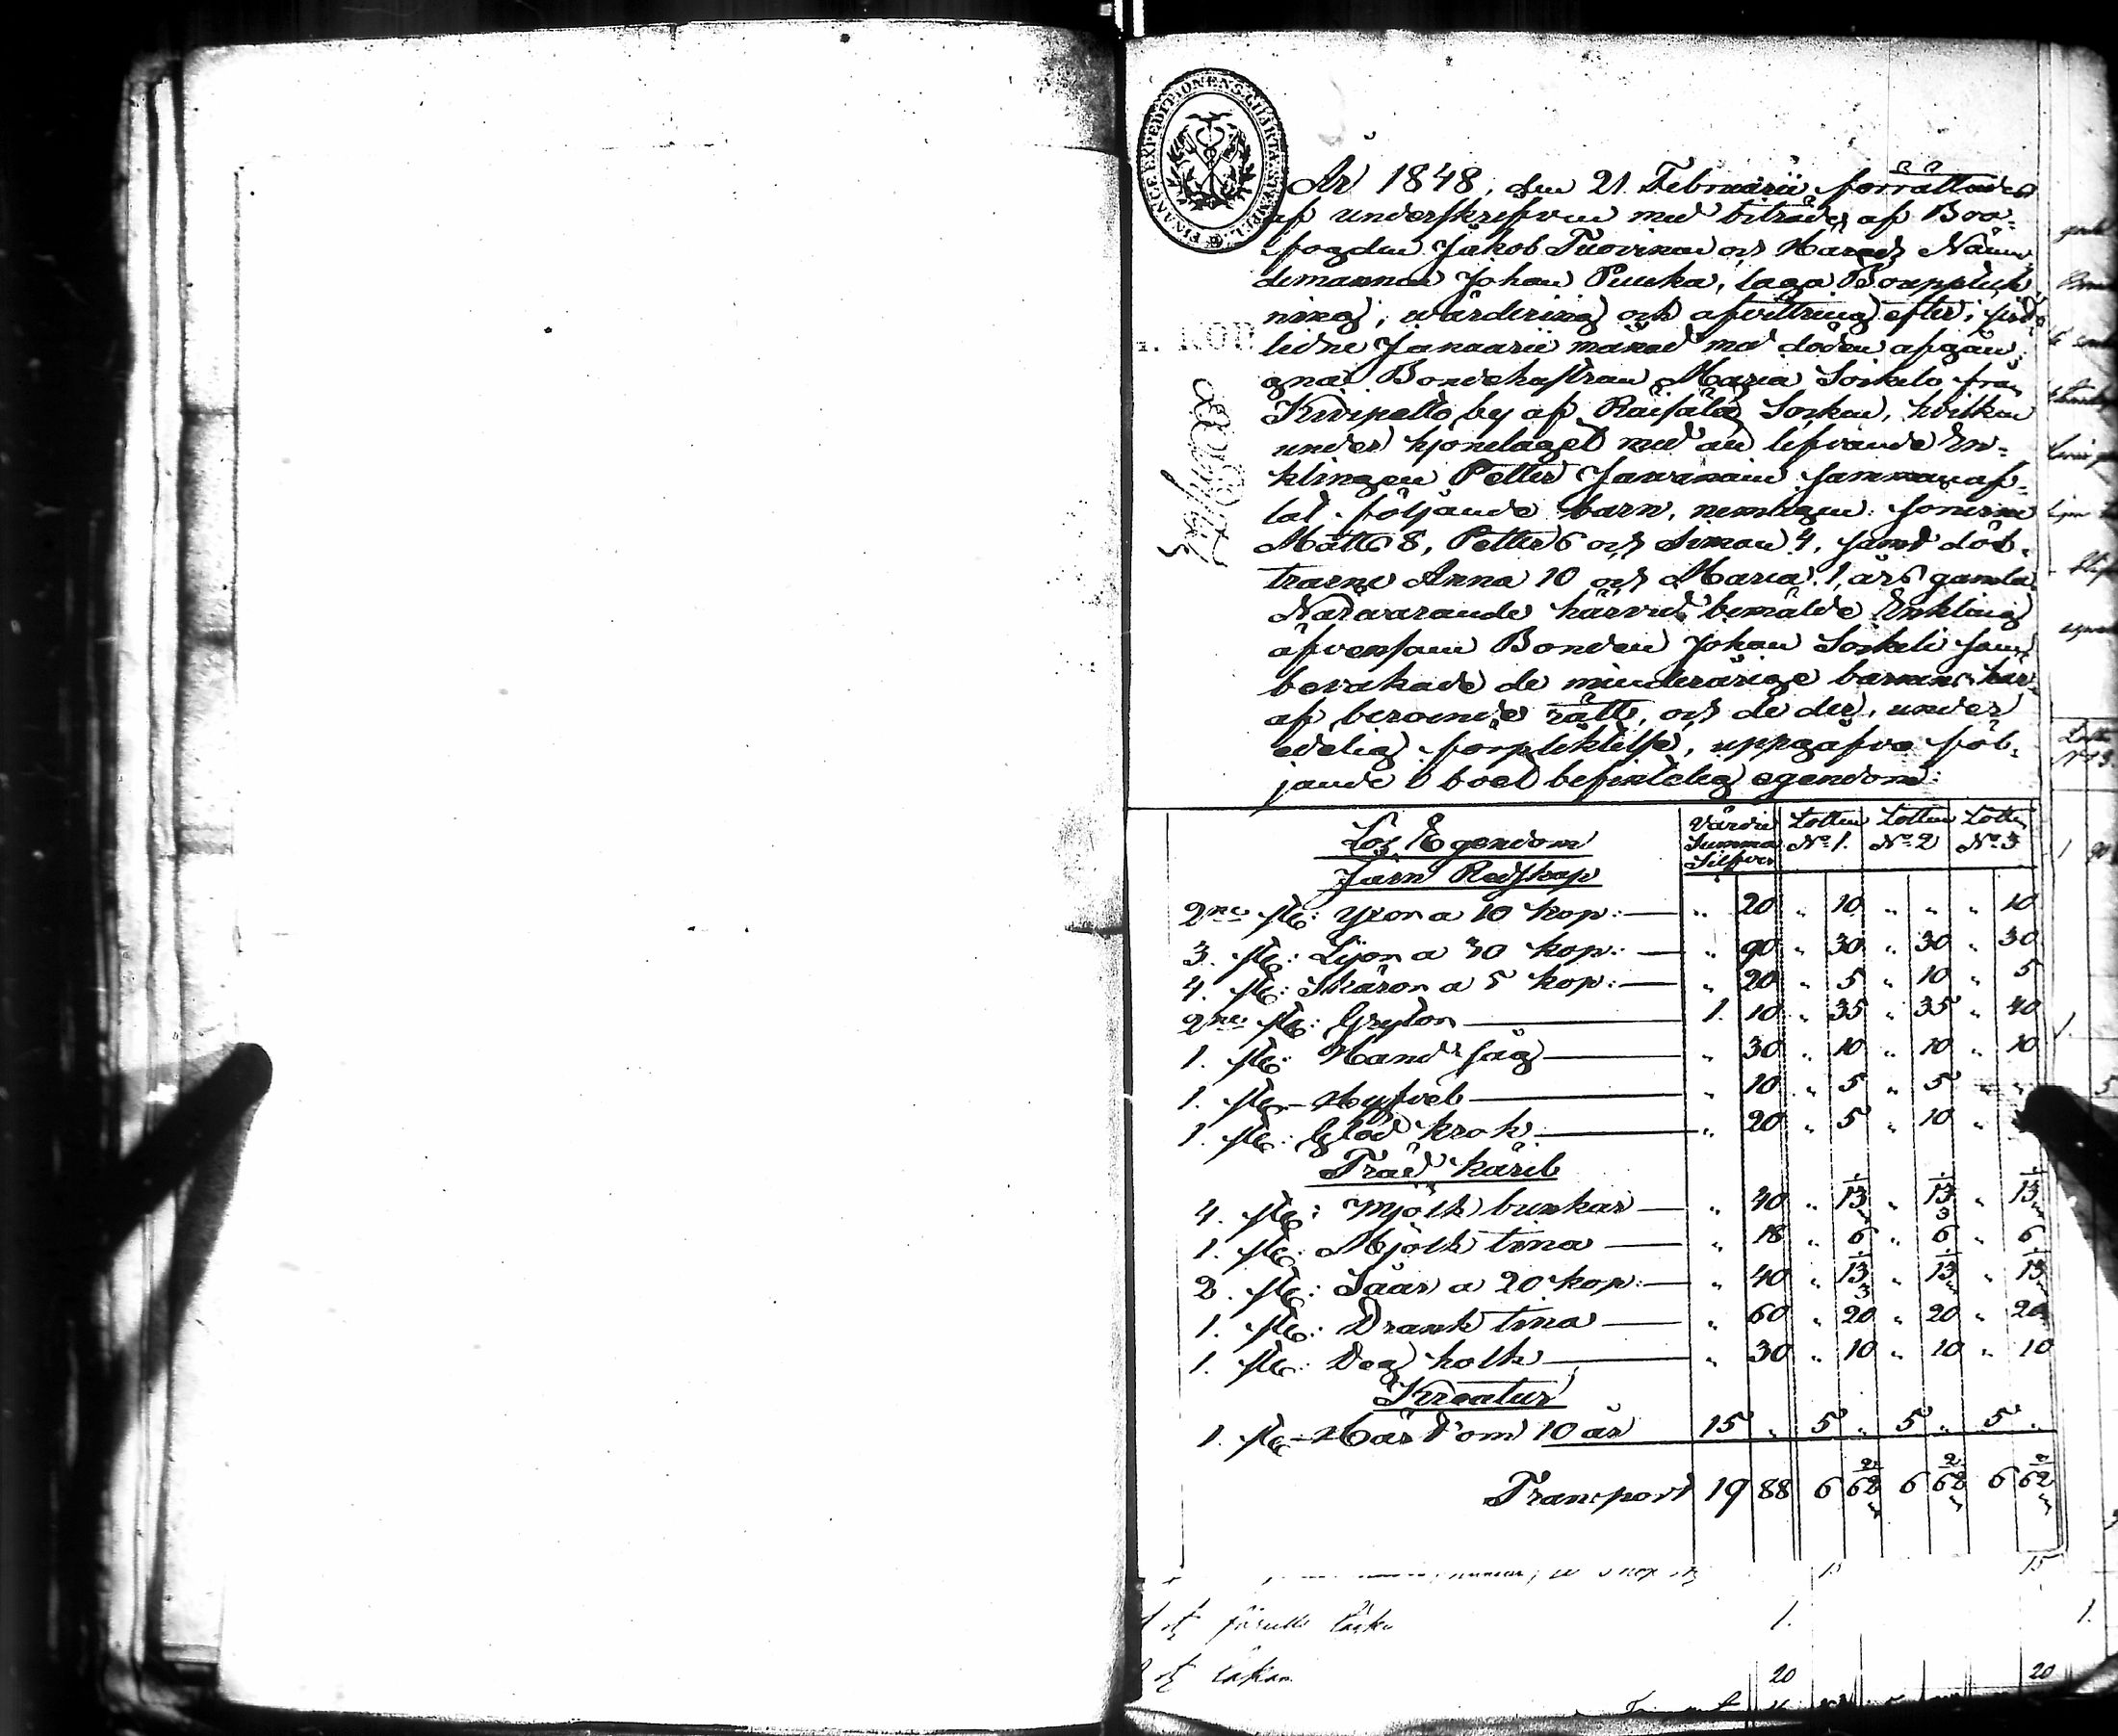 FINANCE EXPEDITIONENS CHARTÆ STÄMPEL.
År 1848, den 21 Februarii förrättades
af underskrifven med biträde af Boo-
fogden Jakob Tuovinen och Härads Nämn-
demannen Johan Puuka, laga Boupptek-
ning, värdering och afvittring efter, sist-
lidne Januarii månad med döden afgån-
gna Bondehustrun Maria Soikeli från
Kivipelto by af Räisälä Socken, hvilken
under hjonelaget med än lefvande En-
klingen Petter Javanain sammanaf-
lat följande barn, nemligen: sonerne
Matts 8, Petter 6 och Simon 4, samt döt-
trarne Anna 10 och Maria 1 års gamla
Närvarande härvid bemälde Enkling
äfvensom Bonden Johan Soikeli som
bevakade de minderårige barnens här-
af beroende rätt, och de der, under
edelig förpliktelse, uppgafvo föl-
jande i boet befintelig egendom:
4. KOP.
Lös Egendom
Värdie Summa Silfver
Lotten No 1. Lotten No 2 Lotten No 3
Järn Redskap
2ne st: Yxor a 10 kop: " 20 " 10 " " " 10
3. st: Lijor a 30 kop: " 90 " 30 " 30 " 30
4. st: Skäror a 5 kop: " 20 " 5 " 10 " 5
2ne st: Grytor 1. 10 " 35 " 35 " 40
1. st: Hand såg " 30 " 10 " 10 " 10
1. st: Hyfvel " 10 " 5 " 5 " "
1. st: Glöd krok " 20 " 5 " 10 "
Träd käril
4. st: Mjölk bunkar " 40 " 13 1/3 " 13 1/3 " 13 1/3
1. st: Mjölk tina " 18 " 6 " 6 " 6
2. st: Såar a 20 kop: " 40 " 13 1/3 " 13 1/3 " 13 1/3
1. st: Drank tina " 60 " 20 " 20 " 20
1. st: Deg holk " 30 " 10 " 10 " 10
Kreatur
1. st Häst om 10 år 15 " 5 " 5 " 5 "
Transport 19 88 6 62 2/3 6 62 2/3 6 62 2/3
15
1. 1.
20 20